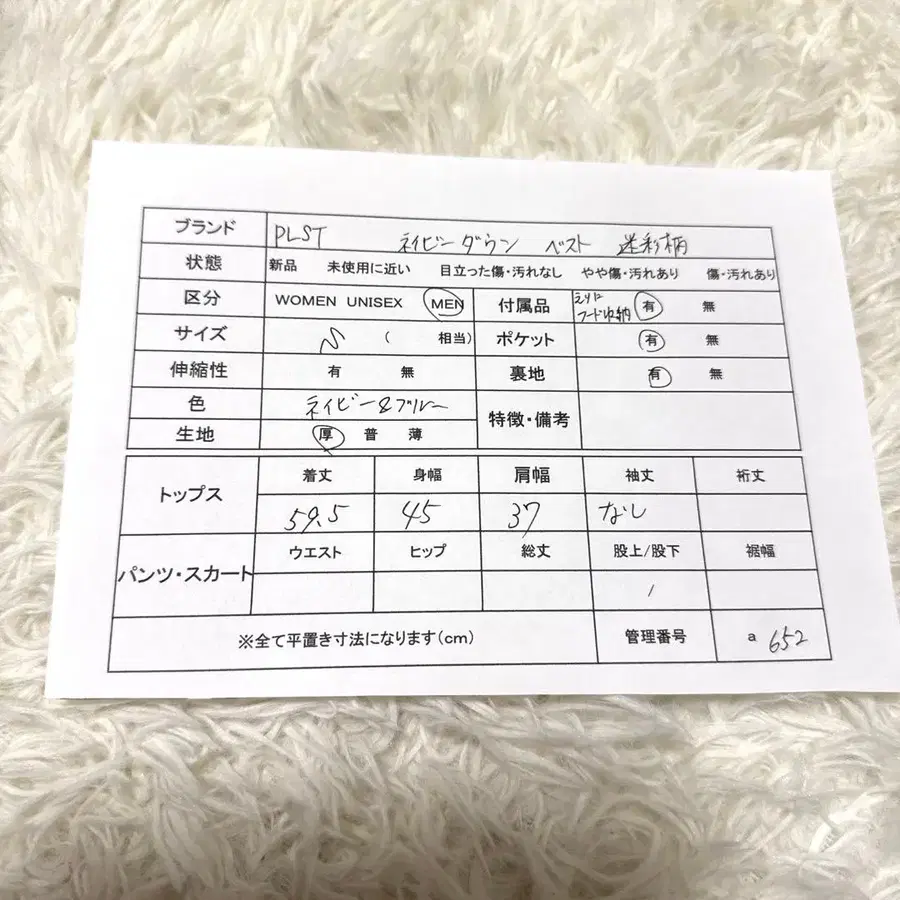 ブランド PLST ネイビー ダウン ベスト 迷彩柄
状態 新品 未使用に近い 目立った傷・汚れなし やや傷・汚れあり 傷・汚れあり
区分 WOMEN UNISEX MEN 付属品 えりに フード収納 有 無
サイズ ( 相当) ポケット 有 無
伸縮性 有 無 裏地 有 無
色 ネイビー&ブルー 特徴・備考
生地 厚 普 薄
トップス 着丈 身幅 肩幅 袖丈 裄丈
59.5 45 37 なし
パンツ・スカート ウエスト ヒップ 総丈 股上/股下 裾幅
/
※全て平置き寸法になります(cm) 管理番号 a 652